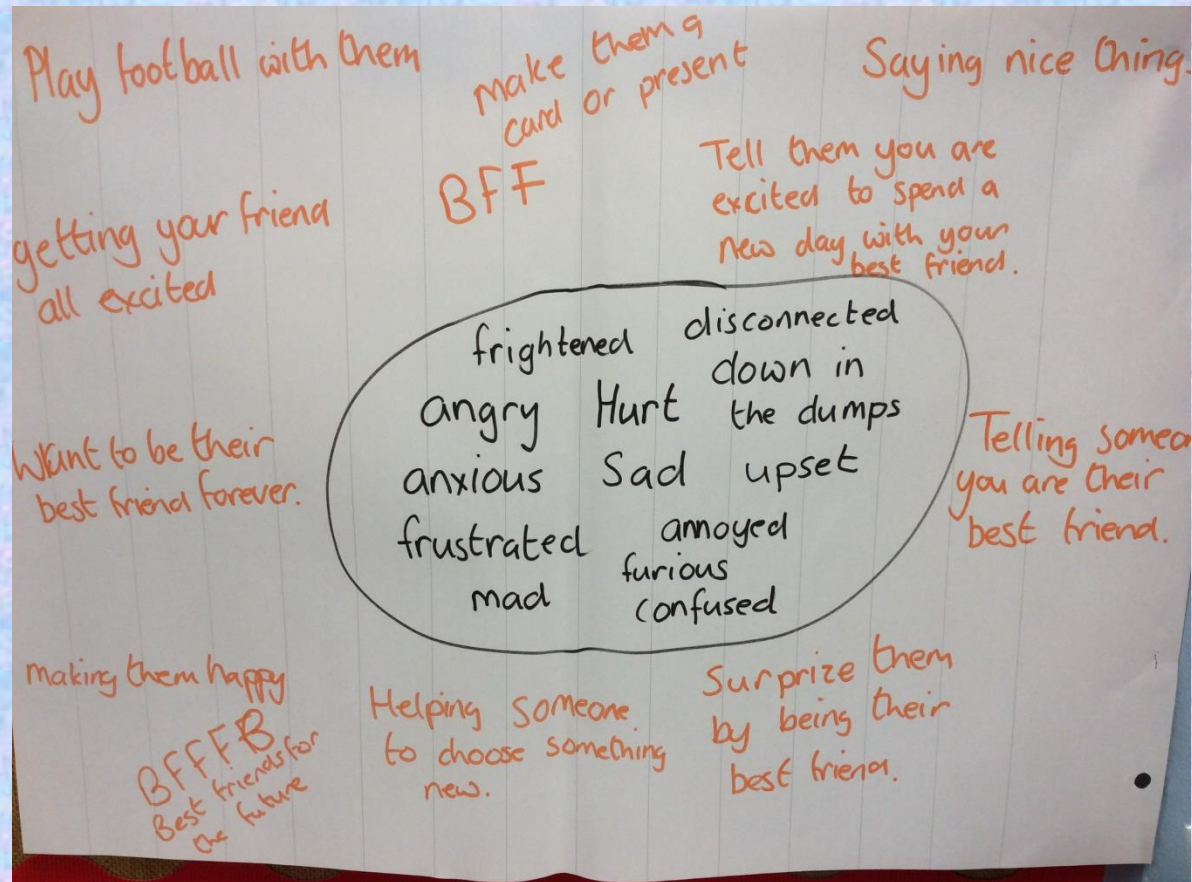 Play football with them
make them a
card or present
Saying nice thing.
BFF
Tell them you are
excited to spend a
new day with your
best friend.
getting your friend
all excited
frightened
disconnected
down in
the dumps
angry
Hurt
anxious
Sad
upset
frustrated
annoyed
furious
mad
confused
Want to be their
best friend forever.
Telling someo
you are their
best friend.
making them happy
BFFFB
Best friends for
the future
Helping someone
to choose something
new.
Surprize them
by being their
best friend.